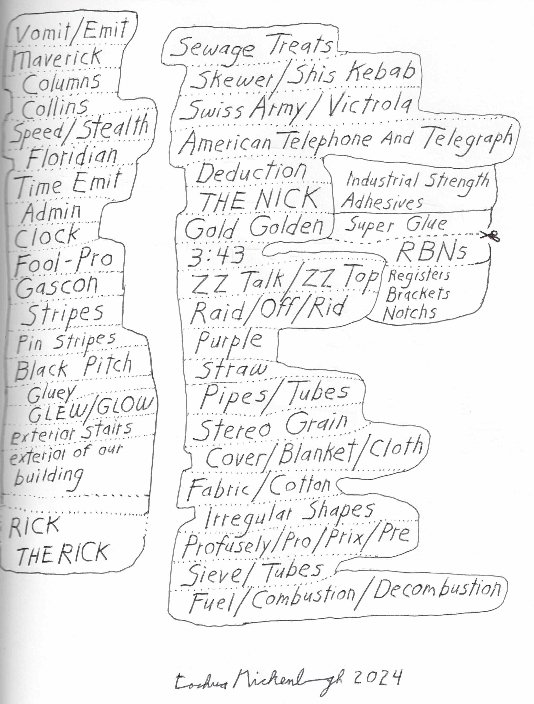 Vomit/Emit
Maverick
Columns
Collins
Speed/Stealth
Floridian
Time Emit
Admin
Clock
Fool-Pro
Gascon
Stripes
Pin Stripes
Black Pitch
Gluey
GLEW/GLOW
exterior stairs
exterior of our
building
RICK
THE RICK
Sewage Treats
Skewer/Shis Kebab
Swiss Army/Victrola
American Telephone And Telegraph
Deduction
THE NICK
Gold Golden
3:43
ZZ Talk/ZZ Top
Raid/Off/Rid
Purple
Straw
Pipes/Tubes
Stereo Grain
Cover/Blanket/Cloth
Fabric/Cotton
Irregular Shapes
Profusely/Pro/Prix/Pre
Sieve/Tubes
Fuel/Combustion/Decombustion
Industrial Strength
Adhesives
Super Glue
RBNs
Registers
Brackets
Notchs
2024